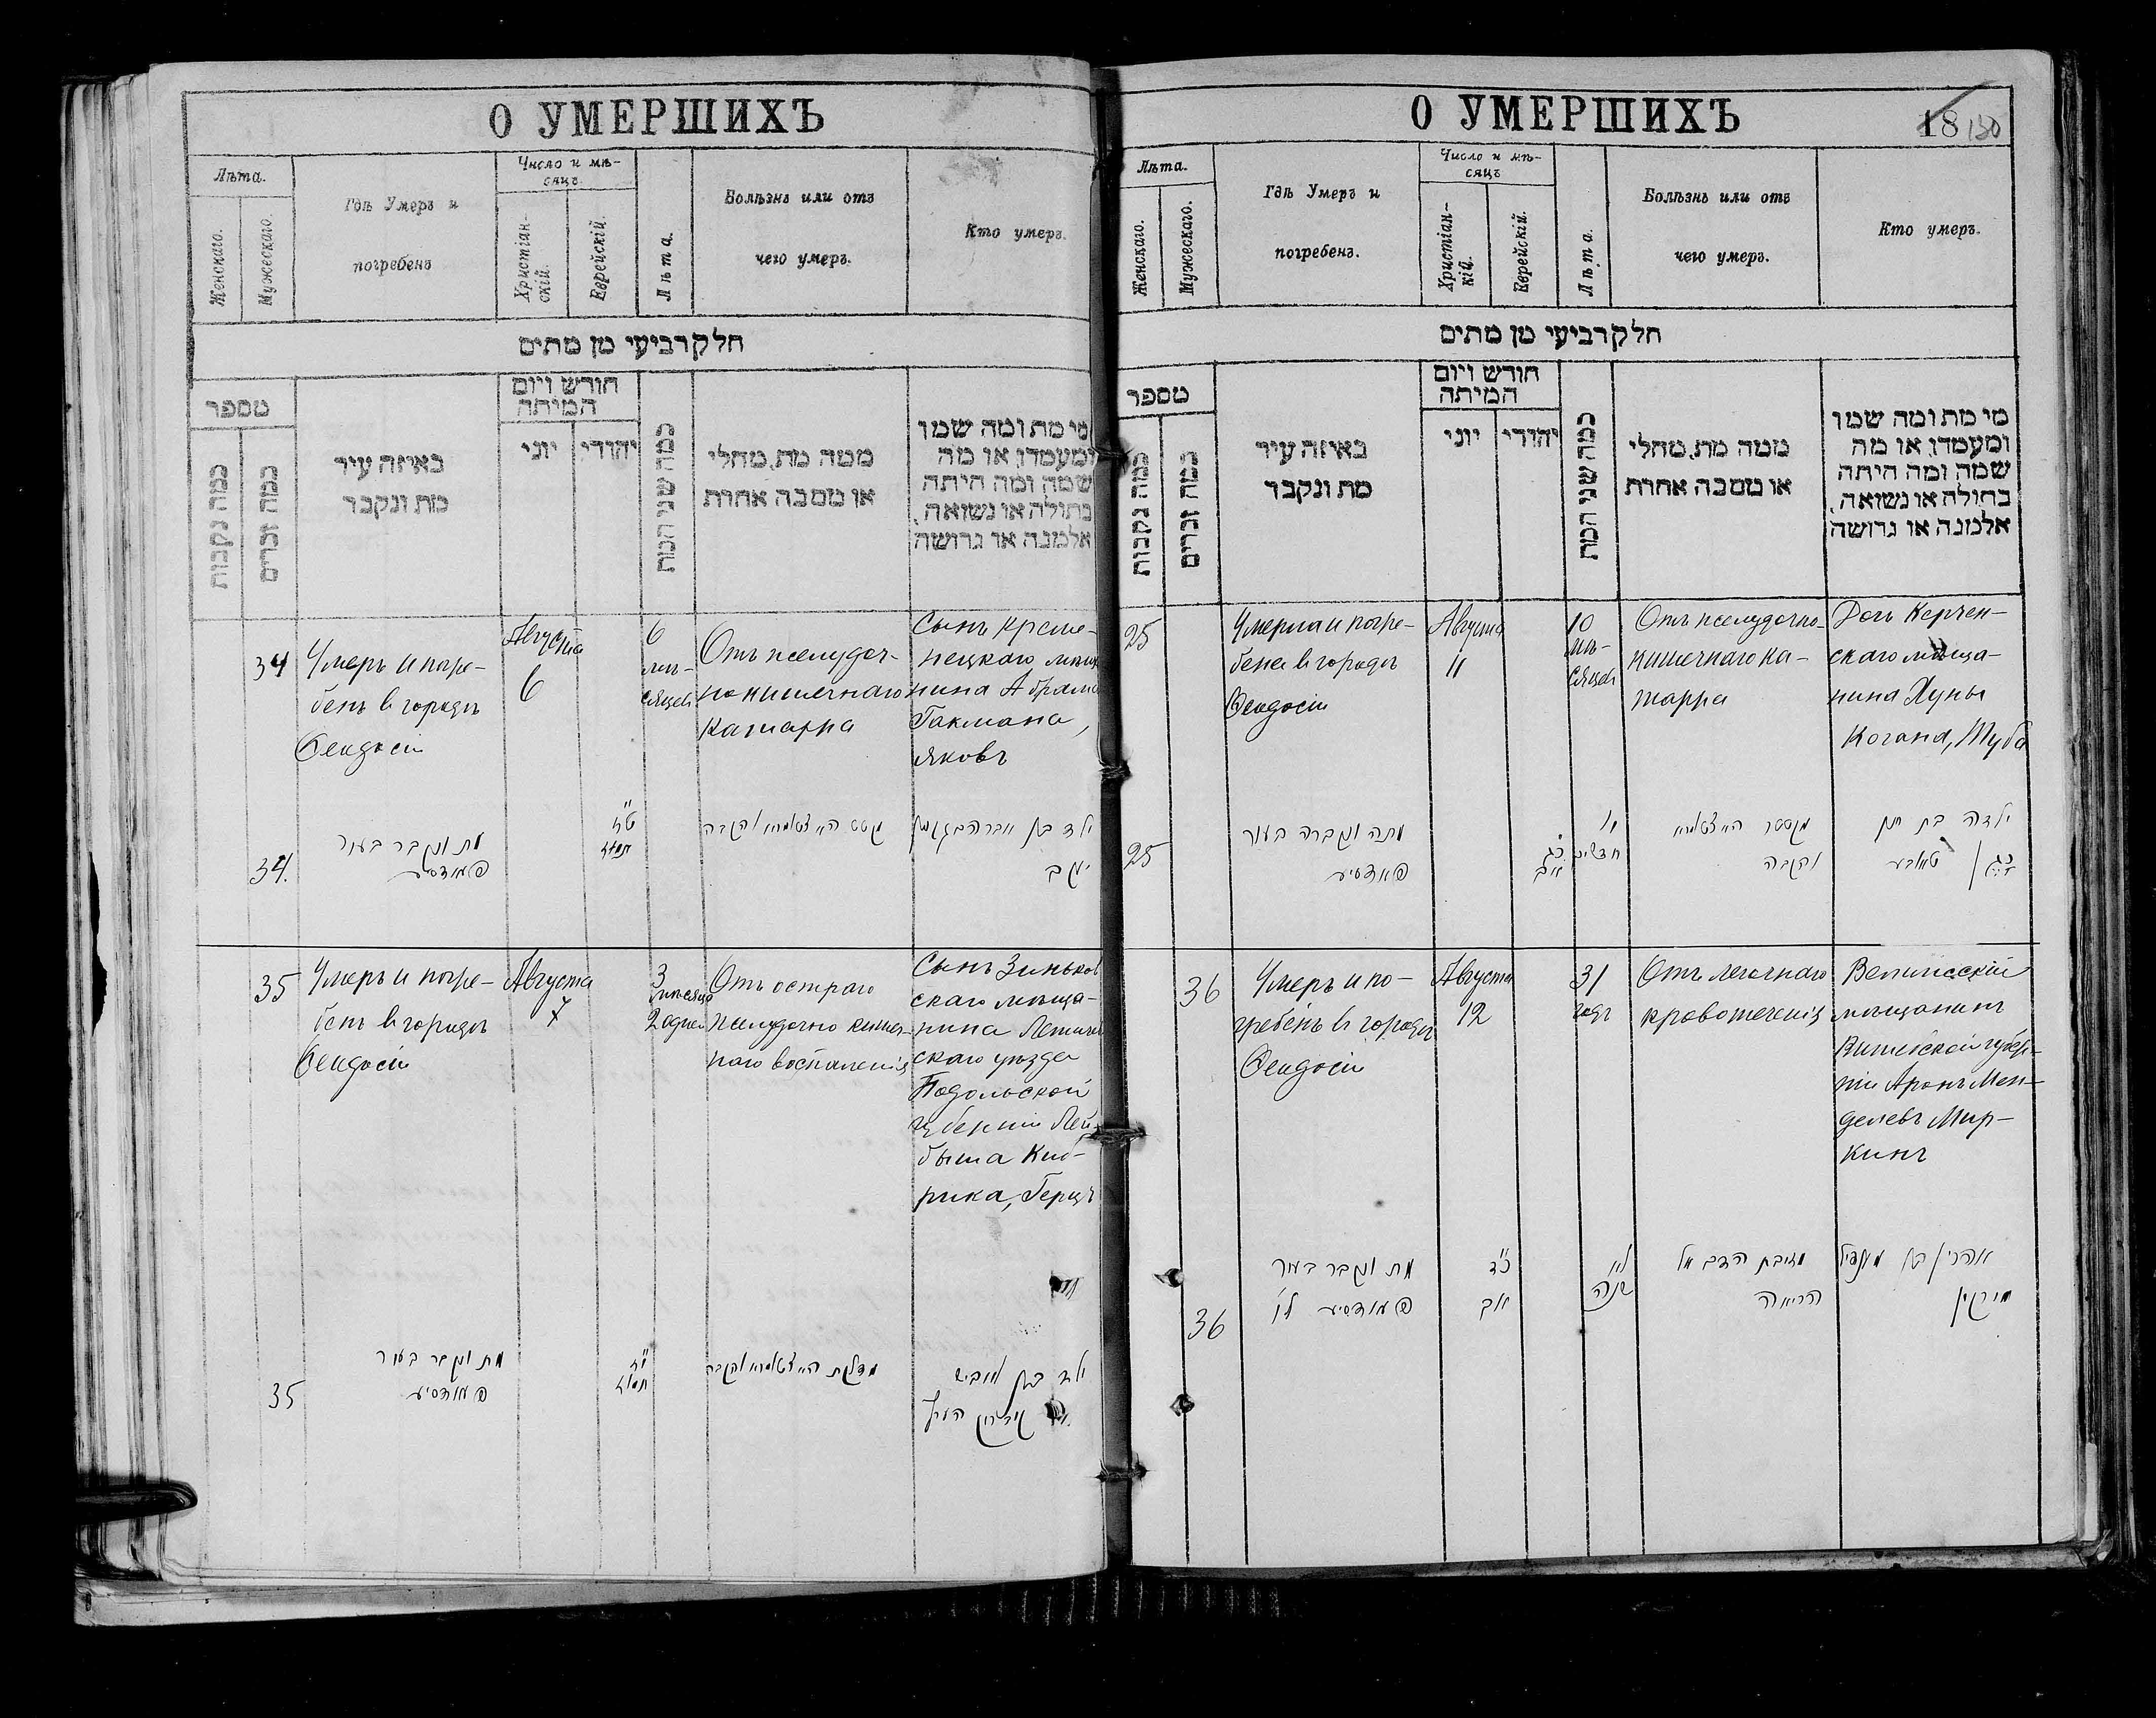 О УМЕРШИХЪ
Лѣта.
Женскаго.
Мужескаго.
Гдѣ Умеръ и
погребенъ
Число и мѣ-
сяцъ.
Христіан-
скій.
Еврейскій.
Лѣта.
Болѣзнь или отъ
чего умеръ.
Кто умеръ.
חלק רביעי מן מתים
מספר
כמה נקבות
כמה זכרים
באיזה עיר
מת ונקבר
חודש ויום
המיתה
יוני
יהודי
כמה שני המת
ממה מת, מחלי
או מסבה אחרת
מי מת ומה שמו
ומעמדו, או מה
שמה ומה היתה
בתולה או נשואה,
אלמנה או גרושה
34
Умеръ и погре-
бенъ въ городѣ
Ѳеодосіи
Августа
6
6
мѣ-
сяцевъ
Отъ желудоч-
но кишечнаго
катарра
Сынъ Креме-
нецкаго мѣща-
нина Абрама
Гакмана,
Яковъ
34.
מת ונקבר בעיר
פעאדסיע
ילד בן
יעקב
35
Умеръ и погре-
бенъ въ городѣ
Ѳеодосіи
Августа
7
3
мѣсяца
2 дней
Отъ остраго
желудочно кишеч-
наго воспаленія
Сынъ Зиньков
скаго мѣща-
нина Летичев
скаго уѣзда
Подольской
губерніи Лей-
быша Киб-
рика, Герцъ
35
מת ונקבר בעיר
פעאדסיע
ילד בן לייביש
О УМЕРШИХЪ
18 130
Лѣта.
Женскаго.
Мужескаго.
Гдѣ Умеръ и
погребенъ.
Число и мѣ-
сяцъ
Христіан-
кій.
Еврейскій.
Лѣта.
Болѣзнь или отъ
чего умеръ.
Кто умеръ.
חלק רביעי מן מתים
מספר
כמה נקבות
כמה זכרים
באיזה עיר
מת ונקבר
חודש ויום
המיתה
יוני
יהודי
כמה שני המת
ממה מת, מחלי
או מסבה אחרת
מי מת ומה שמו
ומעמדו, או מה
שמה ומה היתה
בתולה או נשואה,
אלמנה או גרושה
25
Умерла и погре-
бена въ городѣ
Ѳеодосіи
Августа
11
10
мѣ-
сяцевъ
Отъ желудочно-
кишечнаго ка-
тарра
Дочь Керчен-
скаго мѣща-
нина Хуны
Когана, Туба
25
מתה ונקברה בעיר
פעאדסיע
אב
חדשים
ילדה בת
טאבע
36
Умеръ и по-
гребенъ въ городѣ
Ѳеодосіи
Августа
12
31
годъ
Отъ легочнаго
кровотеченія
Велижскій
мѣщанинъ
Витебской губер-
ніи Аронъ Мен-
делевъ Мир-
кинъ
36
מת ונקבר בעיר
פעאדסיע
אב
שנה
הריאה
אהרן בן מענדיל
מירקין